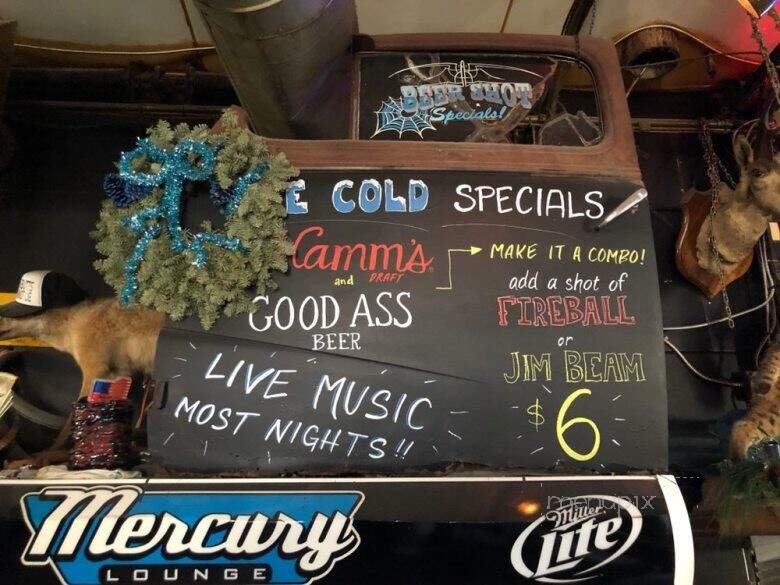 BEER SHOT
Specials!
E COLD SPECIALS
Hamm's
DRAFT
and
GOOD ASS
BEER
MAKE IT A COMBO!
add a shot of
FIREBALL
or
JIM BEAM
$6
LIVE MUSIC
MOST NIGHTS!!
Mercury
LOUNGE
Miller
Lite
menupix